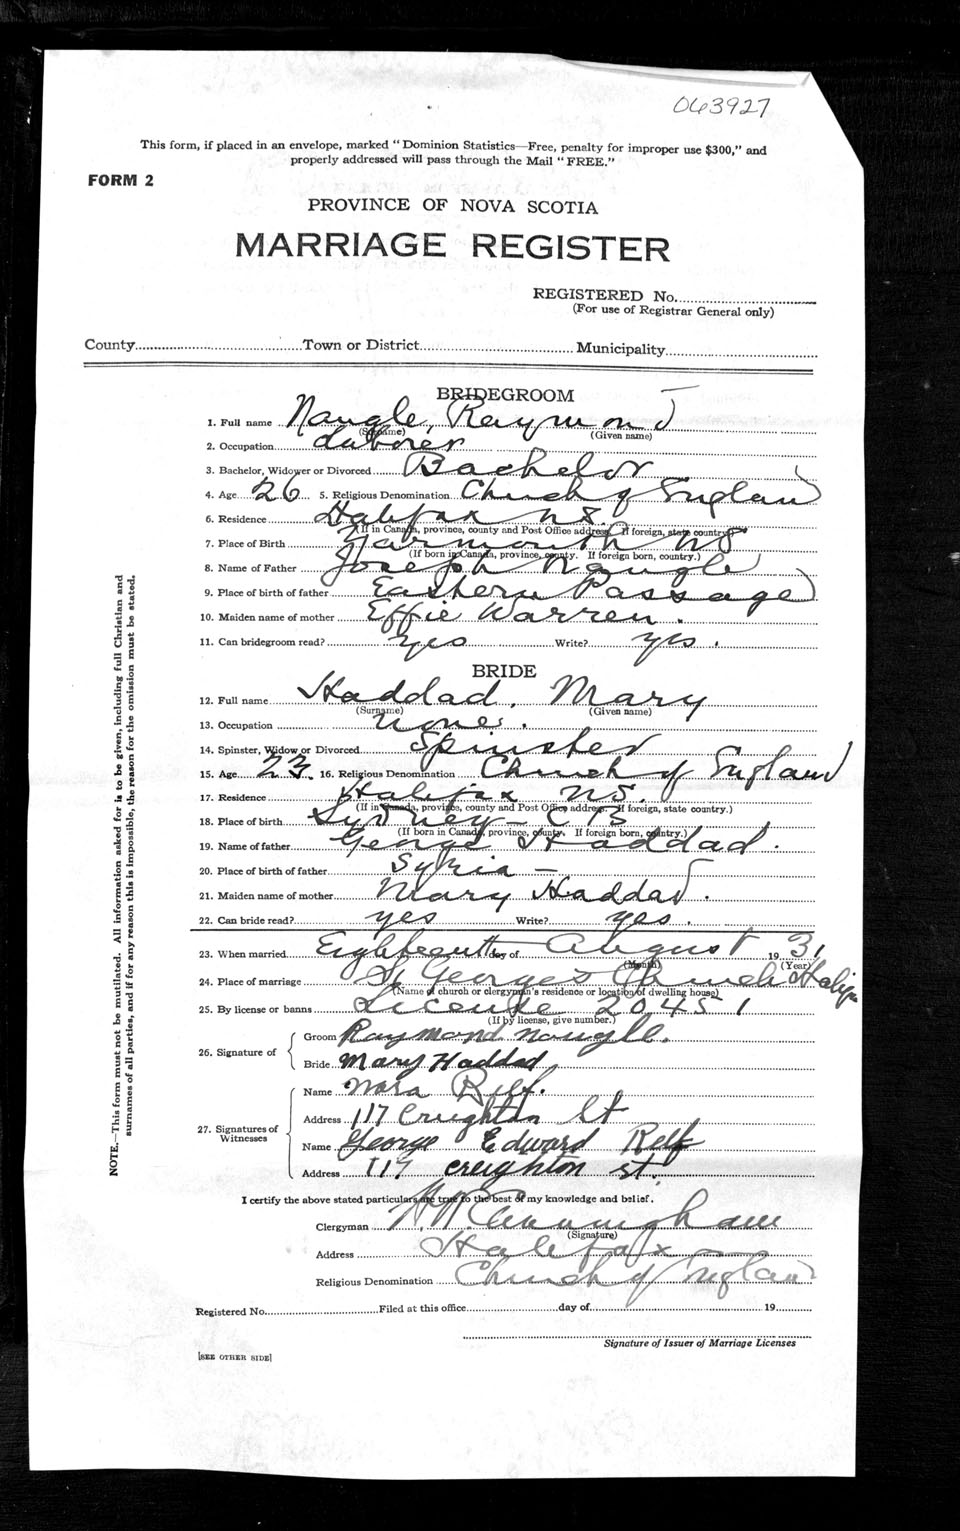 063927
This form, if placed in an envelope, marked "Dominion Statistics—Free, penalty for improper use $300," and
properly addressed will pass through the Mail "FREE."
FORM 2
PROVINCE OF NOVA SCOTIA
MARRIAGE REGISTER
REGISTERED No.
(For use of Registrar General only)
County Town or District Municipality
BRIDEGROOM
1. Full name Naugle, Raymond
(Surname) (Given name)
2. Occupation Laborer
3. Bachelor, Widower or Divorced Bachelor
4. Age 26 5. Religious Denomination Church of England
6. Residence Halifax NS.
(If in Canada, province, county and Post Office address. If foreign, state country.)
7. Place of Birth Yarmouth NS
(If born in Canada, province, county. If foreign born, country.)
8. Name of Father Joseph Naugle
9. Place of birth of father Eastern Passage
10. Maiden name of mother Effie Warren.
11. Can bridegroom read? yes Write? yes.
BRIDE
12. Full name Haddad, Mary
(Surname) (Given name)
13. Occupation none.
14. Spinster, Widow or Divorced Spinster
15. Age 23. 16. Religious Denomination Church of England
17. Residence Halifax NS.
(If in Canada, province, county and Post Office address. If foreign, state country.)
18. Place of birth Sydney - CB
(If born in Canada, province, county. If foreign born, country.)
19. Name of father George Haddad.
20. Place of birth of father Syria -
21. Maiden name of mother Mary Haddad.
22. Can bride read? yes Write? yes.
23. When married Eighteenth day of August 1931
(Month) (Year)
24. Place of marriage St George's Church Halifax
(Name of church or clergyman's residence or location of dwelling house)
25. By license or banns License 20451
(If by license, give number.)
26. Signature of
Groom Raymond Naugle.
Bride Mary Haddad
27. Signatures of
Witnesses
Name Nora Relf.
Address 117 Creighton St
Name George Edward Relf
Address 117 creighton st.
I certify the above stated particulars are true to the best of my knowledge and belief.
Clergyman Cunningham
(Signature)
Address Halifax
Religious Denomination Church of England
Registered No. Filed at this office day of 19
Signature of Issuer of Marriage Licenses
[SEE OTHER SIDE]
NOTE.—This form must not be mutilated. All information asked for is to be given, including full Christian and
surnames of all parties, and if for any reason this is impossible, the reason for the omission must be stated.